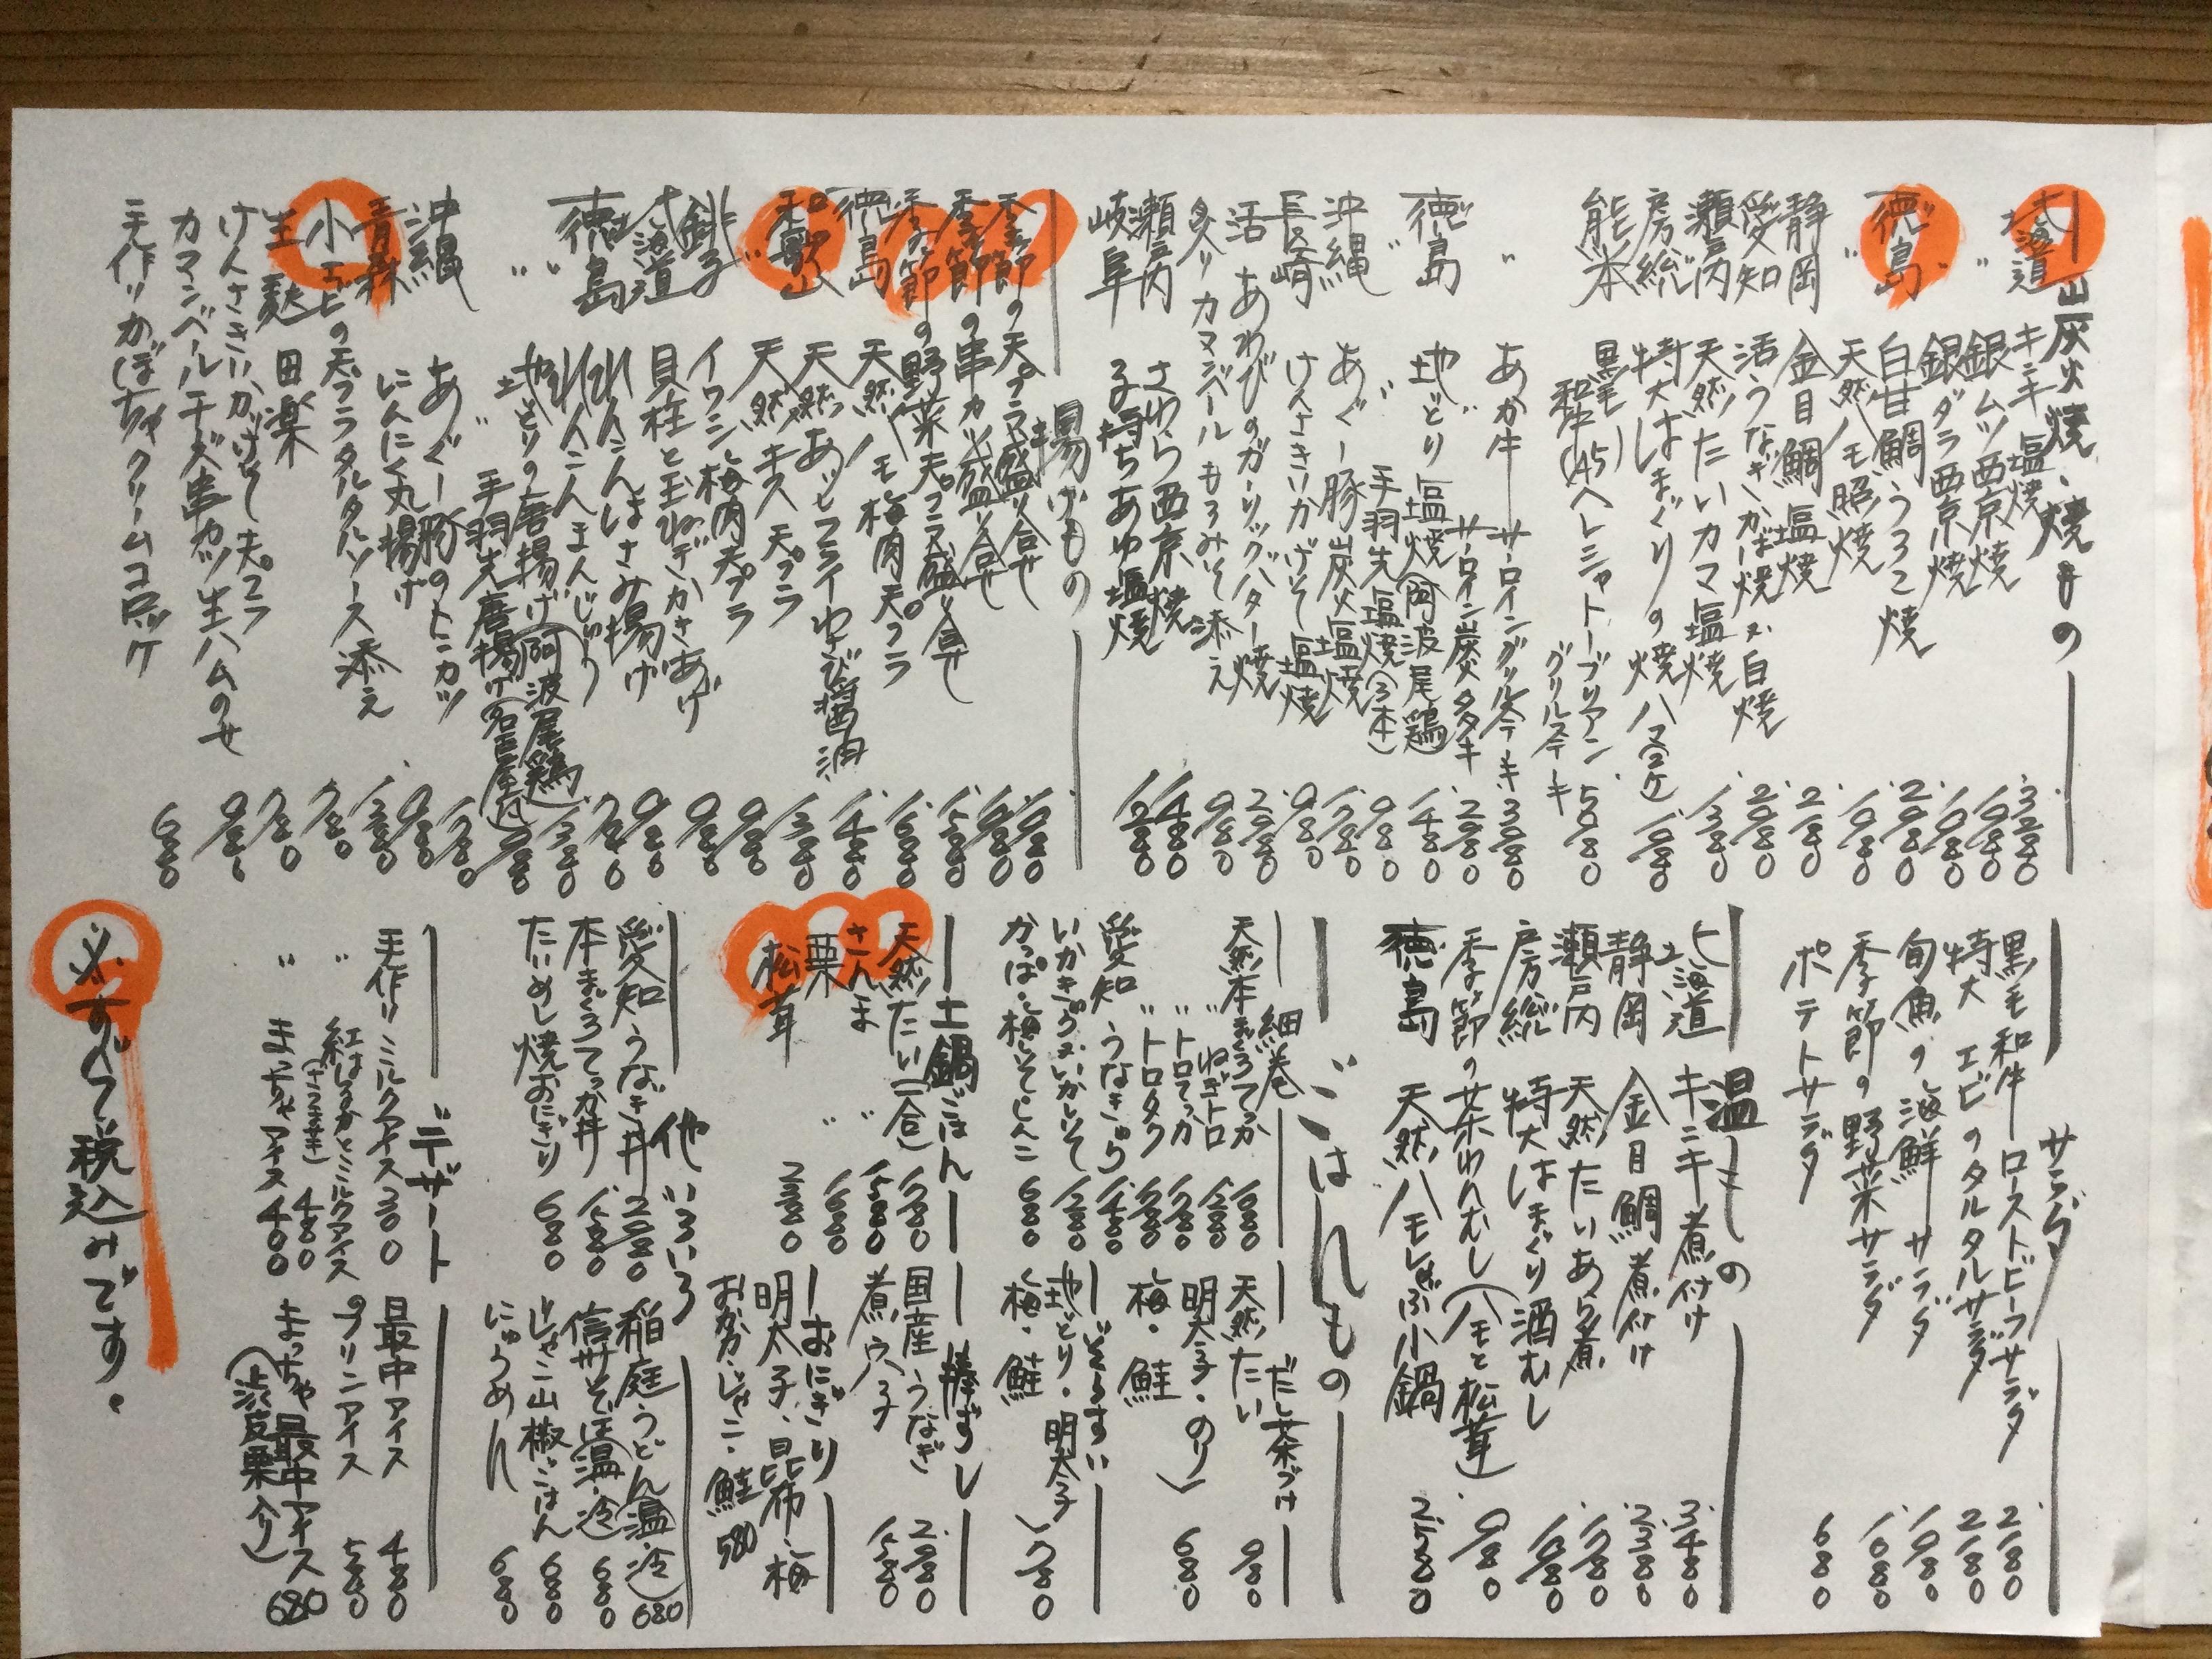 炭火焼・焼もの
北海道 キンキ塩焼 3280
〃 銀ムツ西京焼 1980
銀ダラ西京焼 1980
徳島 白甘鯛うろこ焼 2980
〃 天然ハモ照焼 1980
静岡 金目鯛塩焼 2180
愛知 活うなぎかば焼か白焼 2980
瀬戸内 天然たいカマ塩焼 1380
房総 特大はまぐりの焼ハマ(2ケ) 1080
熊本 黒毛和牛(A5)ヘレシャトーブリアングリルステーキ 5580
〃 あか牛サーロイングリルステーキ 3080
サーロイン炭火タタキ 2980
徳島 地どり塩焼(阿波尾鶏) 1480
〃 手羽先塩焼(3本) 980
沖縄 あぐー豚炭火塩焼 1780
長崎 けんさきいかげそ塩焼 980
活あわびのガーリックバター焼 2980
炙りカマンベールもろみそ添え 980
瀬戸内 さわら西京焼 1480
岐阜 子持ちあゆ塩焼 1280
揚げもの
季節の天プラ盛り合せ 1980
季節の串カツ盛り合せ 1980
季節の野菜天プラ盛り合せ 1580
徳島 天然ハモ梅肉天プラ 1680
和歌山 天然あじフライわさび醤油 1480
〃 天然キス天プラ 1380
銚子 イワシ梅肉天プラ 980
北海道 貝柱と玉ねぎかきあげ 980
徳島 れんこんはさみ揚げ 980
〃 れんこんまんじゅう 780
〃 地どりの唐揚げ(阿波尾鶏) 1380
〃 手羽先唐揚げ(名古屋風) 980
沖縄 あぐー豚のトンカツ 1780
青森 にんにく丸揚げ 980
小エビの天プラタルタルソース添え 1380
生麩田楽 780
けんさきいかげそ天プラ 780
カマンベールチーズ串カツ生ハムのせ 980
手作りかぼちゃクリームコロッケ 680
サラダ
黒毛和牛ローストビーフサラダ 2180
特大エビのタルタルサラダ 2180
旬魚の海鮮サラダ 1980
季節の野菜サラダ 1080
ポテトサラダ 680
温もの
北海道 キンキ煮付け 3480
静岡 金目鯛煮付け 2380
瀬戸内 天然たいあら煮 1780
房総 特大はまぐり酒むし 1080
季節の茶わんむし(ハモと松茸) 980
徳島 天然ハモしゃぶ小鍋 2580
ごはんもの
細巻
天然本まぐろてっか 1680
〃 ねぎトロ 1280
〃 トロてっか 1780
〃 トロタク 1680
愛知 うなきゅう 1480
いかきゅう・いかしそ 1280
かっぱ・梅しそ・しんこ 680
だし茶づけ
天然たい 980
明太子・のり
梅・鮭 680
ぞうすい
地どり・明太子
梅・鮭 780
土鍋ごはん
天然たい(一合) 1780
さんま 〃 1580
栗 〃 1680
松茸 2380
棒ずし
国産うなぎ 2980
煮穴子 1580
おにぎり
明太子・昆布・梅
おかか・じゃこ・鮭 580
他いろいろ
愛知うなぎ丼 2980
本まぐろてっか丼 1580
たいめし焼おにぎり 680
稲庭うどん(温・冷) 680
信州そば(温・冷) 680
じゃこ山椒ごはん 680
にゅうめん 680
デザート
手作りミルクアイス 300
〃 紅はるかとミルクアイス 480
〃 まっちゃアイス 400
最中アイス 480
プリンアイス 580
まっちゃ最中アイス 680
(渋皮栗入り)
※すべて税込みです。